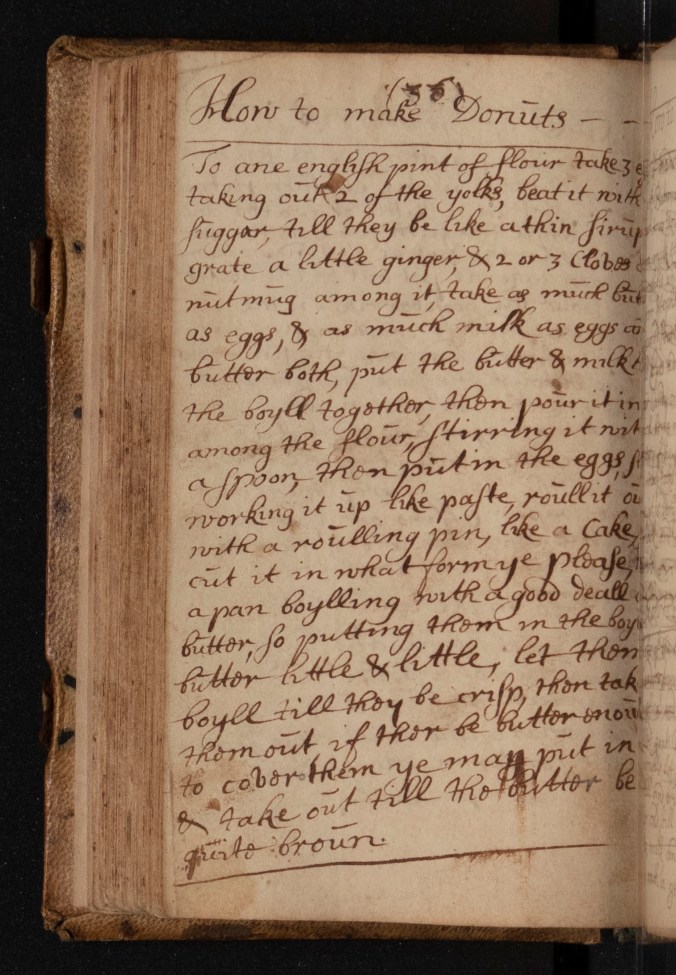 (36)
How to make Donuts — —
To ane english pint of flour take 3
taking out 2 of the yolks, beat it with
suggar, till they be like a thin sirup
grate a little ginger, & 2 or 3 Cloves
nutmug among it, take as much but
as eggs, & as much milk as eggs
butter both, put the butter & milk
the boyll together, then pour it in
among the flour, stirring it wit
a spoon, then put in the eggs,
working it up like paste, roull it ou
with a roulling pin, like a Cake,
cut it in what form ye please,
a pan boylling with a good deall
butter, so putting them in the boy
butter little & little, let them
boyll till they be crisp, then tak
them out, if ther be butter enou
to cover them ye may put in
& take out till the butter be
quite broun.